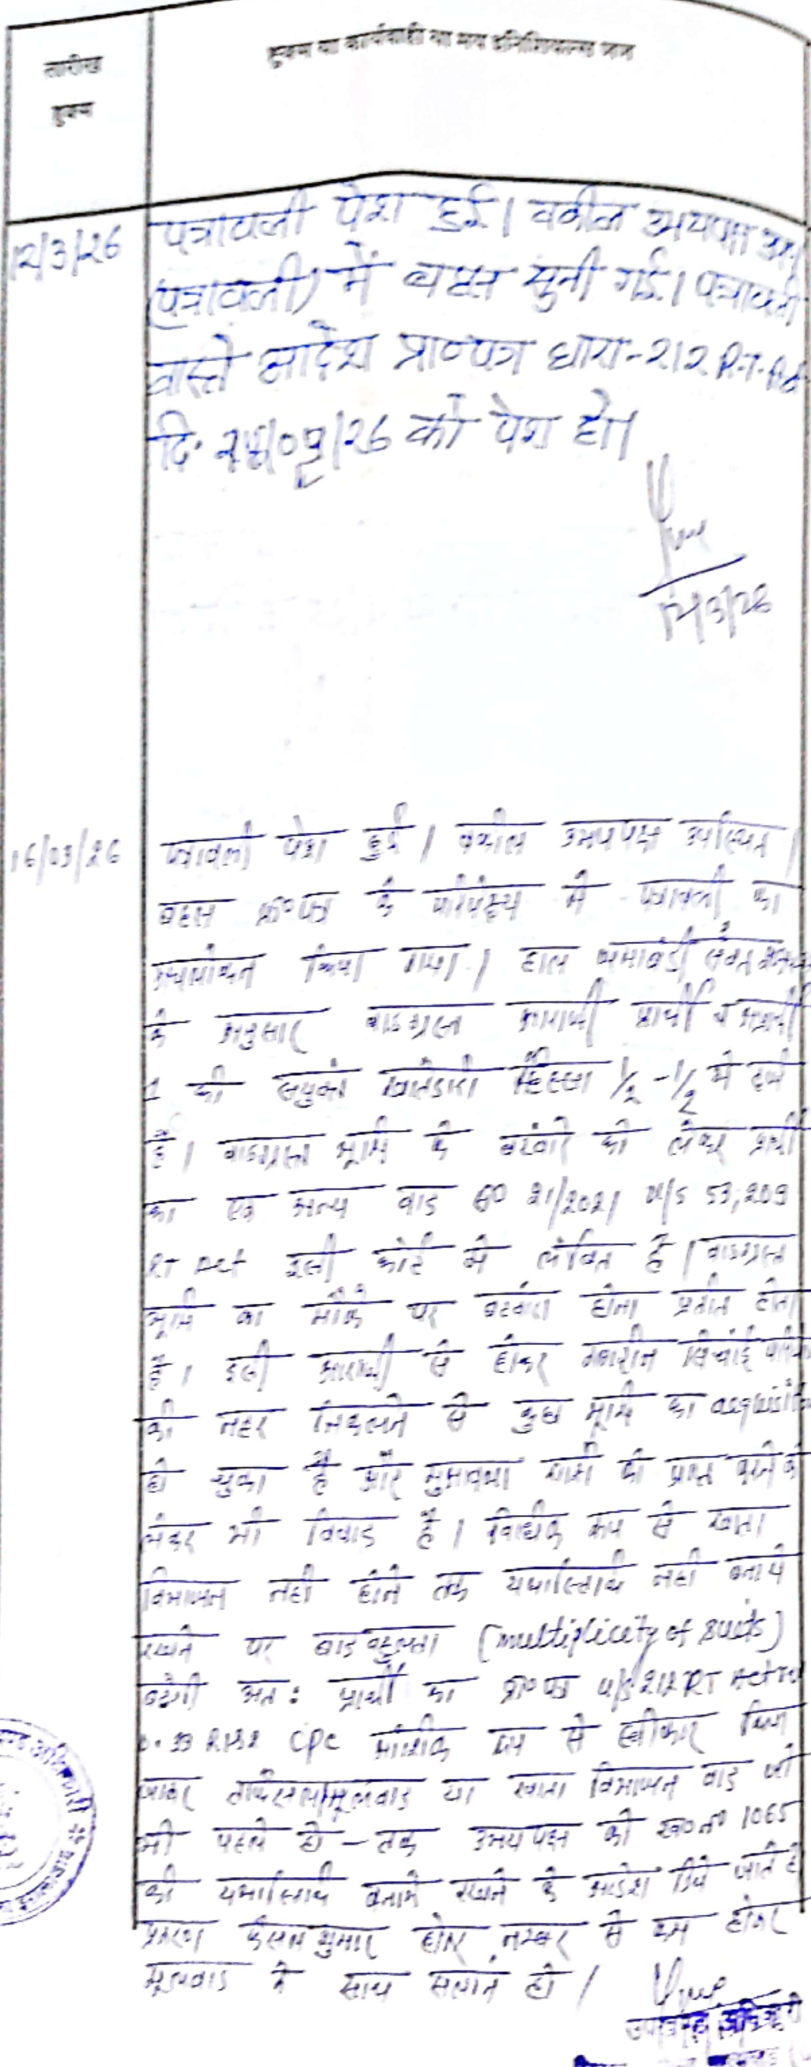 तारीख
हुक्म
हुक्म या कार्यवाही या मय इनिशियल्स जज
12/3/26
पत्रावली पेश हुई। वकील उभयपक्ष उप
(पत्रावली) में बहस सुनी गई। पत्रावली
वास्ते आदेश प्रा०पत्र धारा-212 R.T.Act
दि. /26 को पेश हो।
12/3/26
16/03/26
पत्रावली पेश हुई। वकील उभयपक्ष उपस्थित।
बहस प्रा०पत्र के परिपेक्ष्य में पत्रावली का
अवलोकन किया गया। हाल जमाबंदी संवत
के अनुसार वादग्रस्त आराजी प्रार्थी व अप्रार्थी
1 की संयुक्त खातेदारी हिस्सा 1/2-1/2 में दर्ज
है। वादग्रस्त भूमि के बटवारे को लेकर प्रार्थी
का एक अन्य वाद स० 21/2021 u/s 53,209
RT Act इसी कोर्ट में लंबित है। वादग्रस्त
भूमि का मौके पर बटवारा होना प्रतीत होता
है। इसी आराजी से होकर सिंचाई
की नहर निकलने से कुछ भूमि का acquisition
हो चुका है और मुआवजा राशी को प्राप्त करने को
लेकर भी विवाद है। विधिक रूप से खाता
विभाजन नही होने तक यथास्थिति नही बनाये
रखने पर वाद बहुलता (multiplicity of suits)
बढेगी अत: प्रार्थी का प्रा०पत्र u/s 212 RT Act
O.39 R1&2 CPC आंशिक रूप से स्वीकार किया
जाकर मूलवाद या खाता विभाजन वाद जो
भी पहले हो - तक उभयपक्ष को ख०न० 1065
की यथास्थिति बनाये रखने के आदेश दिये जाते है
प्रकरण फैसल शुमार होकर नम्बर से कम होकर
मूलवाद के साथ सलंग्न हो।
उपखण्ड अधिकारी